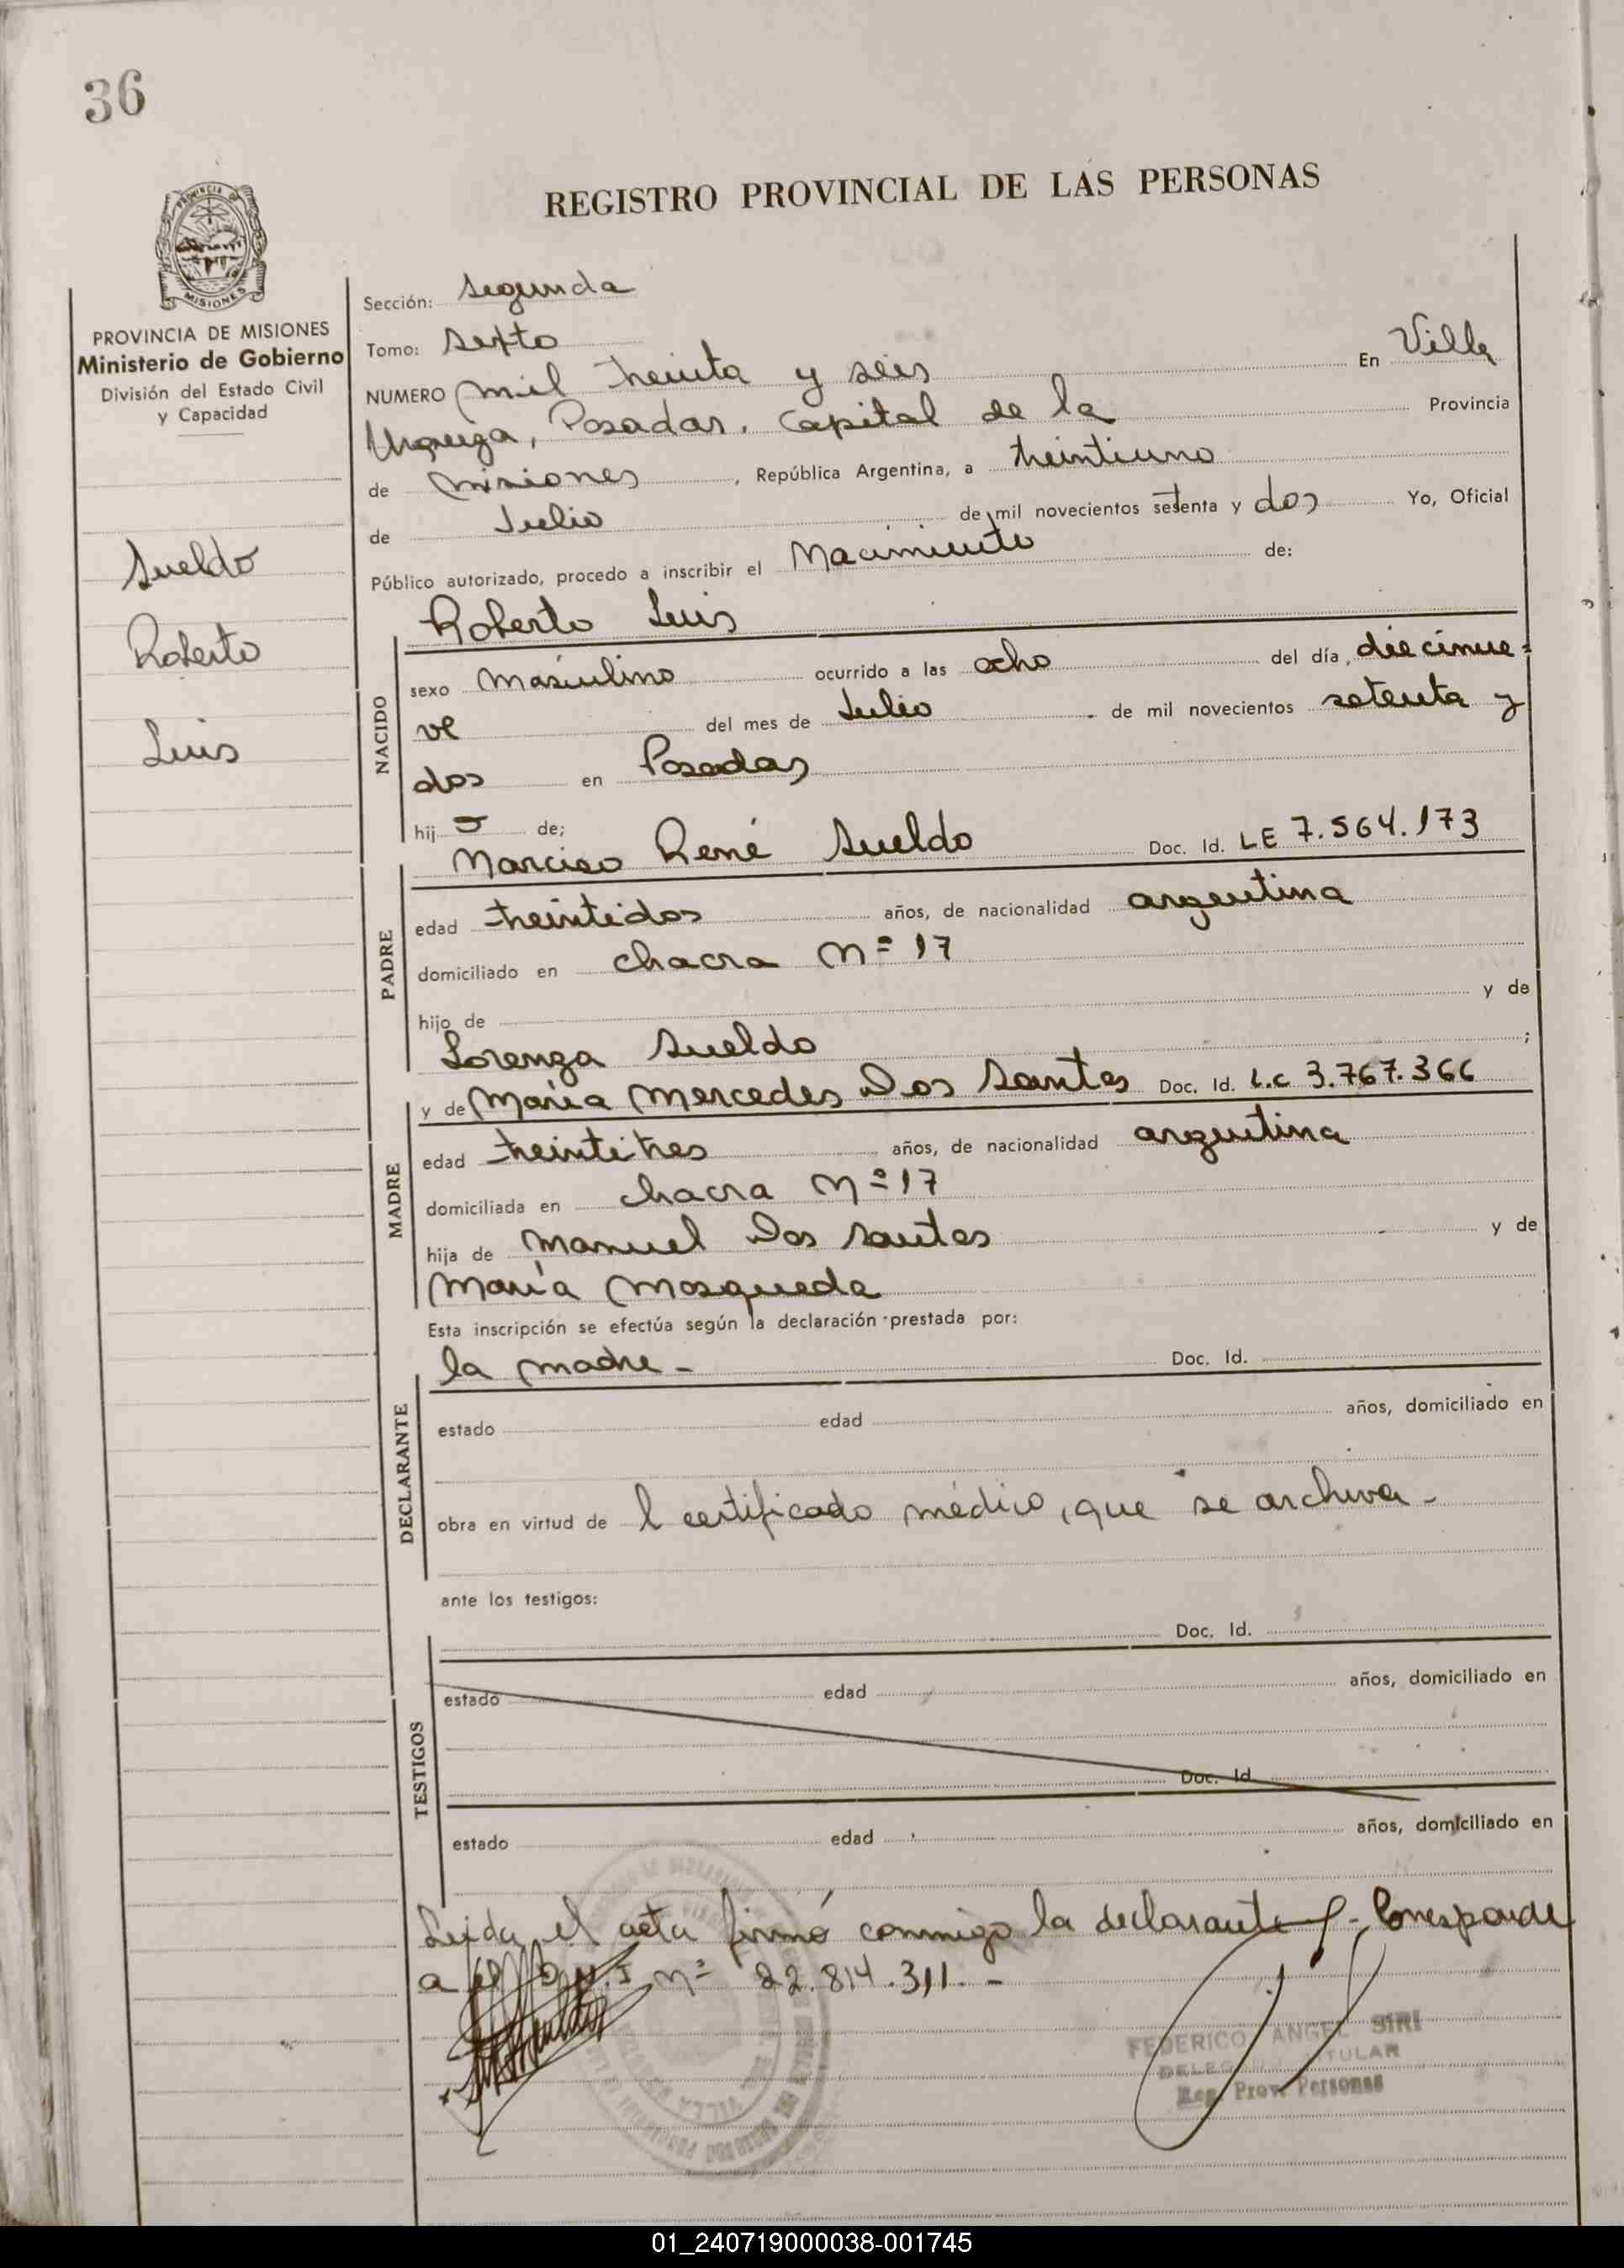 36
REGISTRO PROVINCIAL DE LAS PERSONAS
PROVINCIA DE MISIONES
Ministerio de Gobierno
División del Estado Civil
y Capacidad
Sueldo
Roberto
Luis
Sección: Segunda
Tomo: Sexto
NUMERO mil treinta y seis En Villa
Urquiza, Posadas, Capital de la Provincia
de Misiones, República Argentina, a treintiuno
de Julio de mil novecientos setenta y dos Yo, Oficial
Público autorizado, procedo a inscribir el Nacimiento de:
Roberto Luis
NACIDO
sexo masculino ocurrido a las ocho del día diecinue=
ve del mes de Julio de mil novecientos setenta y
dos en Posadas
hijo de;
Narciso René Sueldo Doc. Id. LE 7.564.173
PADRE
edad treintidos años, de nacionalidad argentina
domiciliado en chacra Nº 17
hijo de y de
Lorenza Sueldo ;
y de María Mercedes Dos Santos Doc. Id. L.C 3.767.366
MADRE
edad treintitres años, de nacionalidad argentina
domiciliada en chacra Nº 17
hija de Manuel Dos Santos y de
María Mosqueda
Esta inscripción se efectúa según la declaración prestada por:
la madre - Doc. Id.
DECLARANTE
estado edad años, domiciliado en
obra en virtud de l certificado médico, que se archiva -
ante los testigos:
Doc. Id.
TESTIGOS
estado edad años, domiciliado en
Doc. Id.
estado edad años, domiciliado en
Leida el acta firmó conmigo la declarante - Corresponde
a el D.N.I nº 22.814.311. -
FEDERICO ANGEL SIRI
DELEGADO TITULAR
Reg. Prov. Personas
01_240719000038-001745